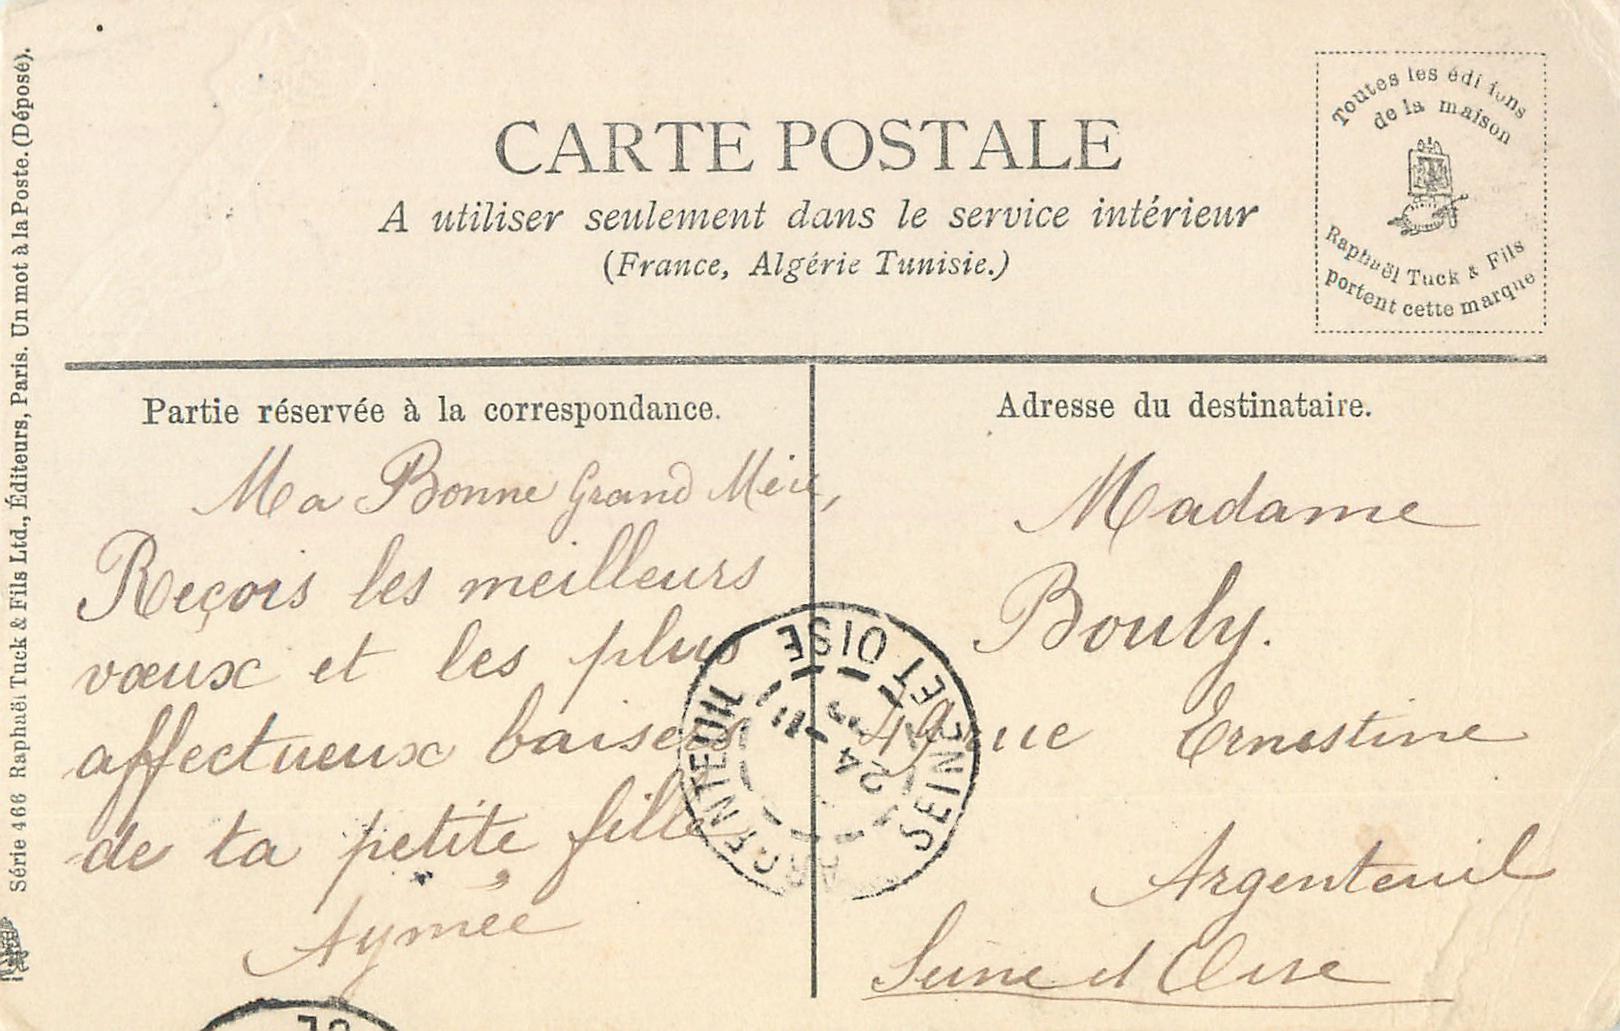 CARTE POSTALE
A utiliser seulement dans le service intérieur
(France, Algérie Tunisie.)
Toutes les éditions
de la maison
Raphaël Tuck & Fils
portent cette marque
Série 466 Raphaël Tuck & Fils Ltd., Éditeurs, Paris. Un mot à la Poste. (Déposé).
Partie réservée à la correspondance.
Ma Bonne Grand Mère,
Reçois les meilleurs
vœux et les plus
affectueux baisers
de ta petite fille
Aymée
Adresse du destinataire.
Madame
Bouly.
49 rue Ernestine
Argenteuil
Seine et Oise
ARGENTEUIL
SEINE ET OISE
24